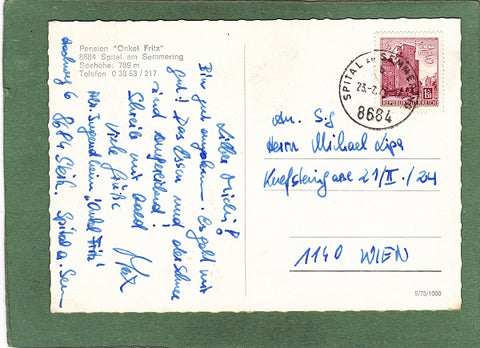 Pension "Onkel Fritz"
8684 Spital am Semmering
Seehöhe: 789 m
Telefon 0 38 53 / 217
Lieber Michi!
Bin gut angekommen. Es geht mir
gut! Das Essen und der Schnee
sind ausgezeichnet!
Schreib mir bald
Viele Grüße
Max
Abs. Jugendheim "Onkel Fritz"
6 8684 Stm. Spital a. Sem
SPITAL AM SEMMERING
8684
REPUBLIK ÖSTERREICH
An. S.g
Herrn Michael
21/II./24
1140 WIEN
5/73/1000